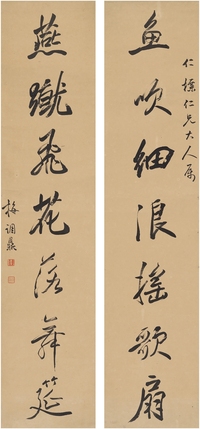 仁檪仁兄大人属
鱼吹细浪摇歌扇
燕蹴飛花落舞筵
梅调鼎